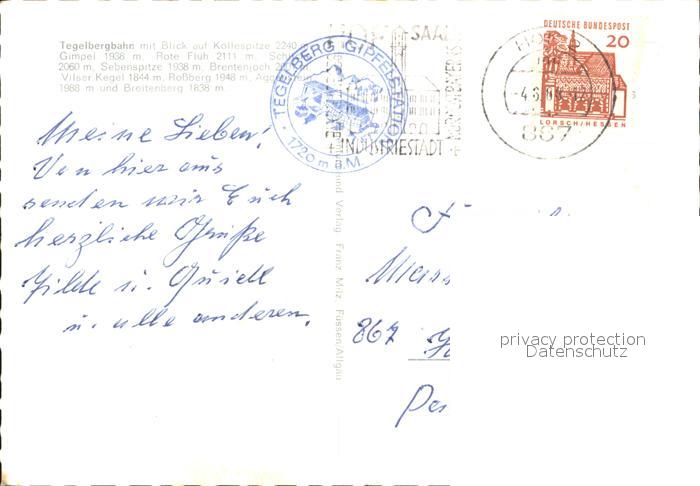 Tegelbergbahn mit Blick auf Köllespitze 2240
Gimpel 1936 m, Rote Fluh 2111 m,
2060 m, Sebenspitze 1938 m, Brentenjoch
Vilser Kegel 1844 m, Roßberg 1948 m,
1988 m und Breitenberg 1838 m.
TEGELBERG GIPFELSTATION
1720 m ü.M.
SAALE
INDUSTRIESTADT
DEUTSCHE BUNDESPOST
20
LORSCH/HESSEN
867
Meine Lieben!
Von hier aus
senden wir Euch
herzliche Grüße
Hilde u.
u. alle anderen.
und Verlag Franz Milz, Füssen/Allgäu
867
privacy protection
Datenschutz